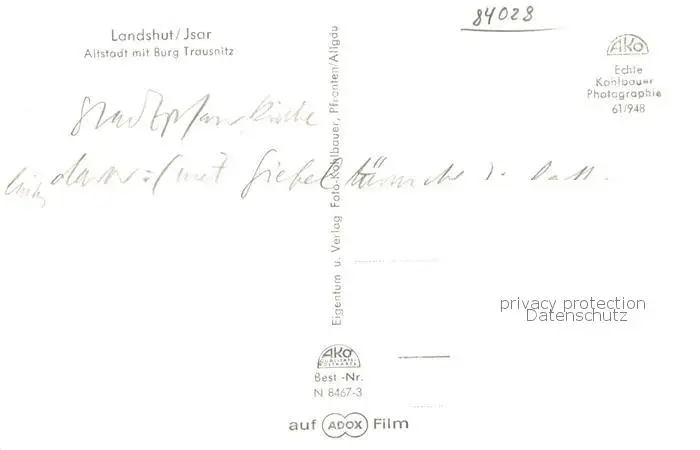 84028
Landshut/Jsar
Altstadt mit Burg Trausnitz
AKO
Echte
Kohlbauer
Photographie
61/948
Stadtpfarrkirche
mit Giebel
Eigentum u. Verlag Foto-Kohlbauer, Pfronten/Allgäu
privacy protection
Datenschutz
AKO
QUALITÄTS-
POSTKARTE
Best -Nr.
N 8467-3
auf ADOX Film